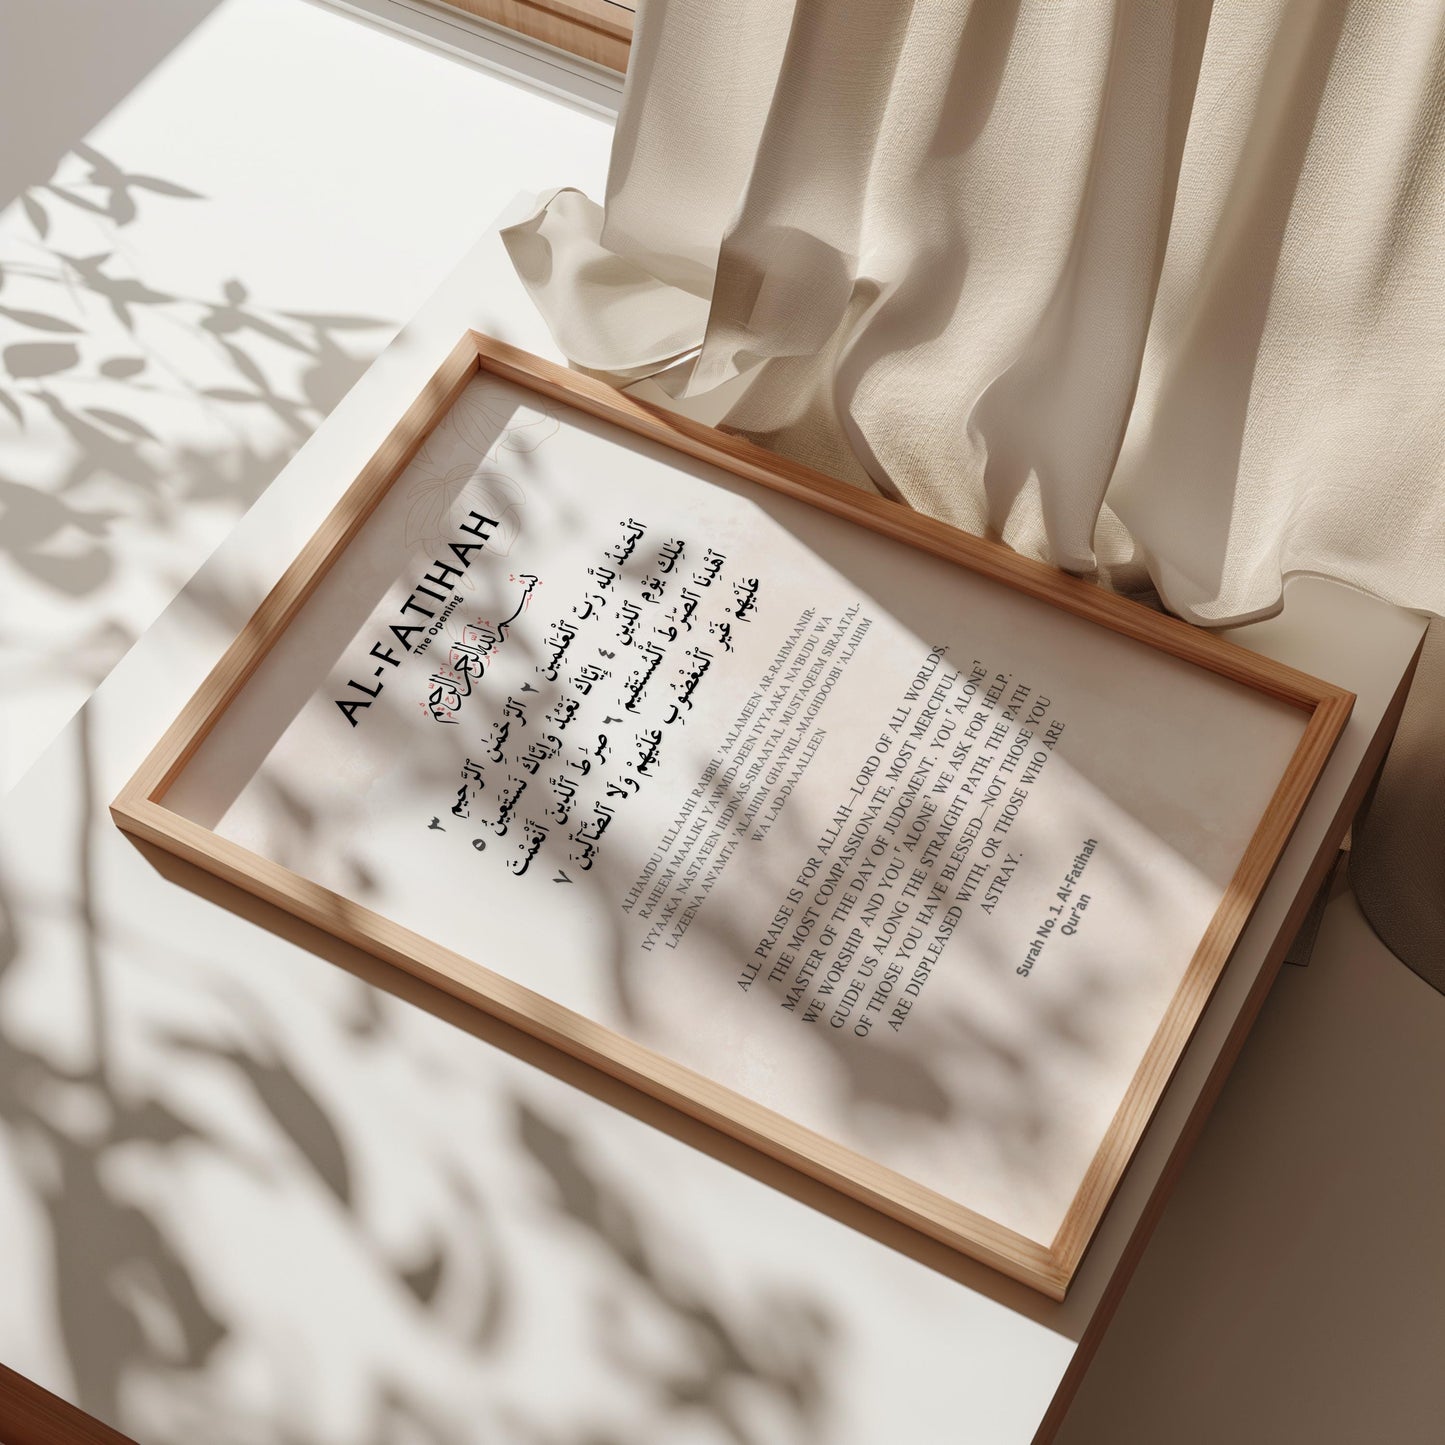 AL-FATIHAH
The Opening
بِسْمِ ٱللَّهِ ٱلرَّحْمَٰنِ ٱلرَّحِيمِ
ٱلْحَمْدُ لِلَّهِ رَبِّ ٱلْعَٰلَمِينَ ٢ ٱلرَّحْمَٰنِ ٱلرَّحِيمِ ٣
مَٰلِكِ يَوْمِ ٱلدِّينِ ٤ إِيَّاكَ نَعْبُدُ وَإِيَّاكَ نَسْتَعِينُ ٥
ٱهْدِنَا ٱلصِّرَٰطَ ٱلْمُسْتَقِيمَ ٦ صِرَٰطَ ٱلَّذِينَ أَنْعَمْتَ
عَلَيْهِمْ غَيْرِ ٱلْمَغْضُوبِ عَلَيْهِمْ وَلَا ٱلضَّآلِّينَ ٧
ALHAMDU LILLAAHI RABBIL 'AALAMEEN AR-RAHMAANIR-
RAHEEM MAALIKI YAWMID-DEEN IYYAAKA NA'BUDU WA
IYYAAKA NASTA'EEN IHDINAS-SIRAATAL MUSTAQEEM SIRAATAL-
LAZEENA AN'AMTA 'ALAIHIM GHAYRIL-MAGHDOOBI 'ALAIHIM
WA LAD-DAAALLEEN
ALL PRAISE IS FOR ALLAH—LORD OF ALL WORLDS,
THE MOST COMPASSIONATE, MOST MERCIFUL,
MASTER OF THE DAY OF JUDGMENT. YOU ˹ALONE˺
WE WORSHIP AND YOU ˹ALONE˺ WE ASK FOR HELP.
GUIDE US ALONG THE STRAIGHT PATH, THE PATH
OF THOSE YOU HAVE BLESSED—NOT THOSE YOU
ARE DISPLEASED WITH, OR THOSE WHO ARE
ASTRAY.
Surah No. 1. Al-Fatihah
Qur'an